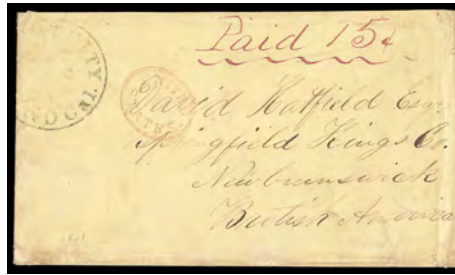 Paid 15¢
CITY
CAL.
David Hatfield Esqr
Springfield King's Co.
Newbrunswick
British America